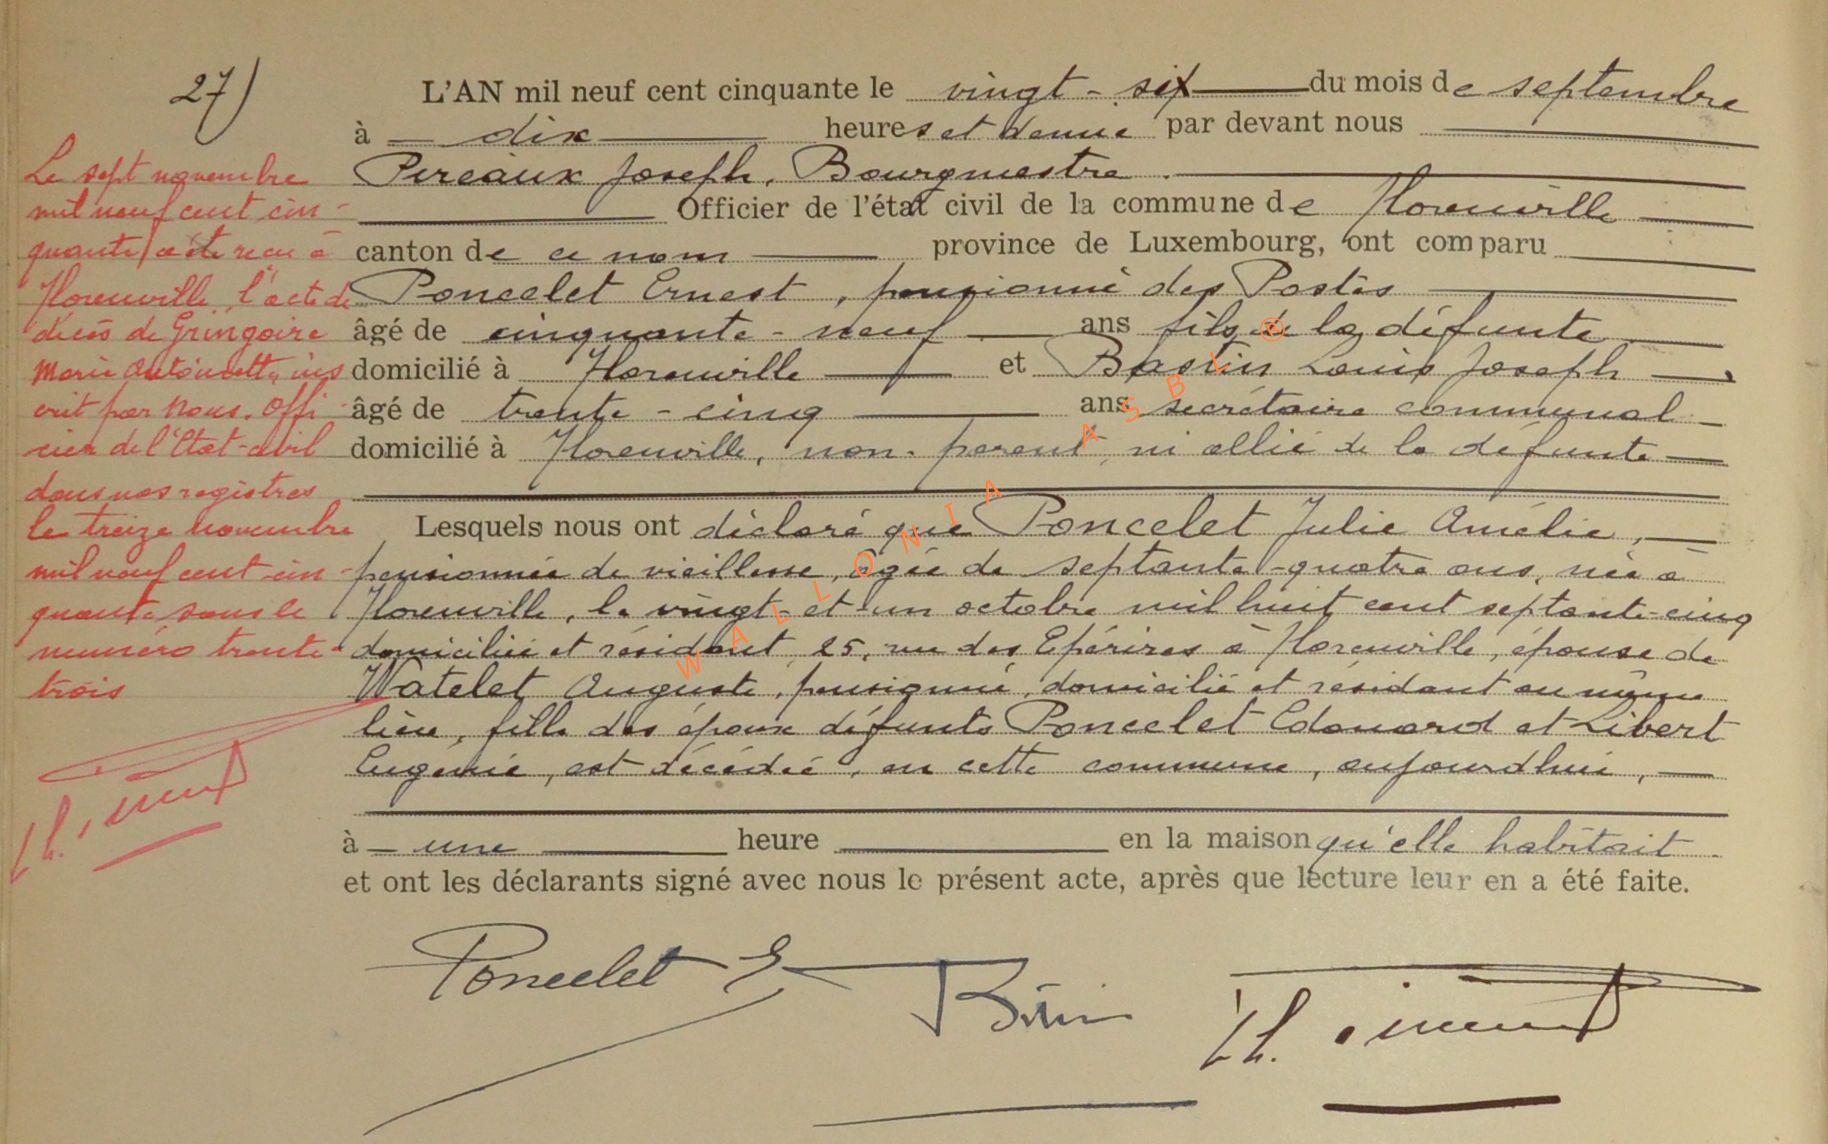 27)
L'AN mil neuf cent cinquante le vingt - six du mois de septembre
à dix heures et demie par devant nous
Pireaux Joseph, Bourgmestre.
Officier de l'état civil de la commune de Florenville
canton de ce nom province de Luxembourg, ont comparu
Poncelet Ernest, pensionné des Postes
âgé de cinquante - neuf ans fils de la défunte
domicilié à Florenville et Bastin Louis Joseph
âgé de trente - cinq ans secrétaire communal
domicilié à Florenville, non - parent, ni allié de la défunte
Lesquels nous ont déclaré que Poncelet Julie Amélie,
pensionnée de vieillesse, âgée de septante-quatre ans, née à
Florenville, le vingt-et-un octobre mil huit cent septante-cinq
domiciliée et résidant, 25, rue des Epérires à Florenville, épouse de
Watelet Auguste, pensionné, domicilié et résidant au même
lieu, fille des époux défunts Poncelet Edouard et Libert
Eugénie, est décédée, en cette commune, aujourd'hui,
à une heure en la maison qu'elle habitait
et ont les déclarants signé avec nous le présent acte, après que lecture leur en a été faite.
Poncelet E
Le sept novembre
mil neuf cent cin -
quante, a été reçu à
Florenville, l'acte de
décès de Gringoire
Marie Antoinette, ins
crit par Nous, Offi -
cier de l'Etat-civil
dans nos registres
le treize novembre
mil neuf cent cin -
quante sous le
numéro trente -
trois
WALLONIA ASBL ®